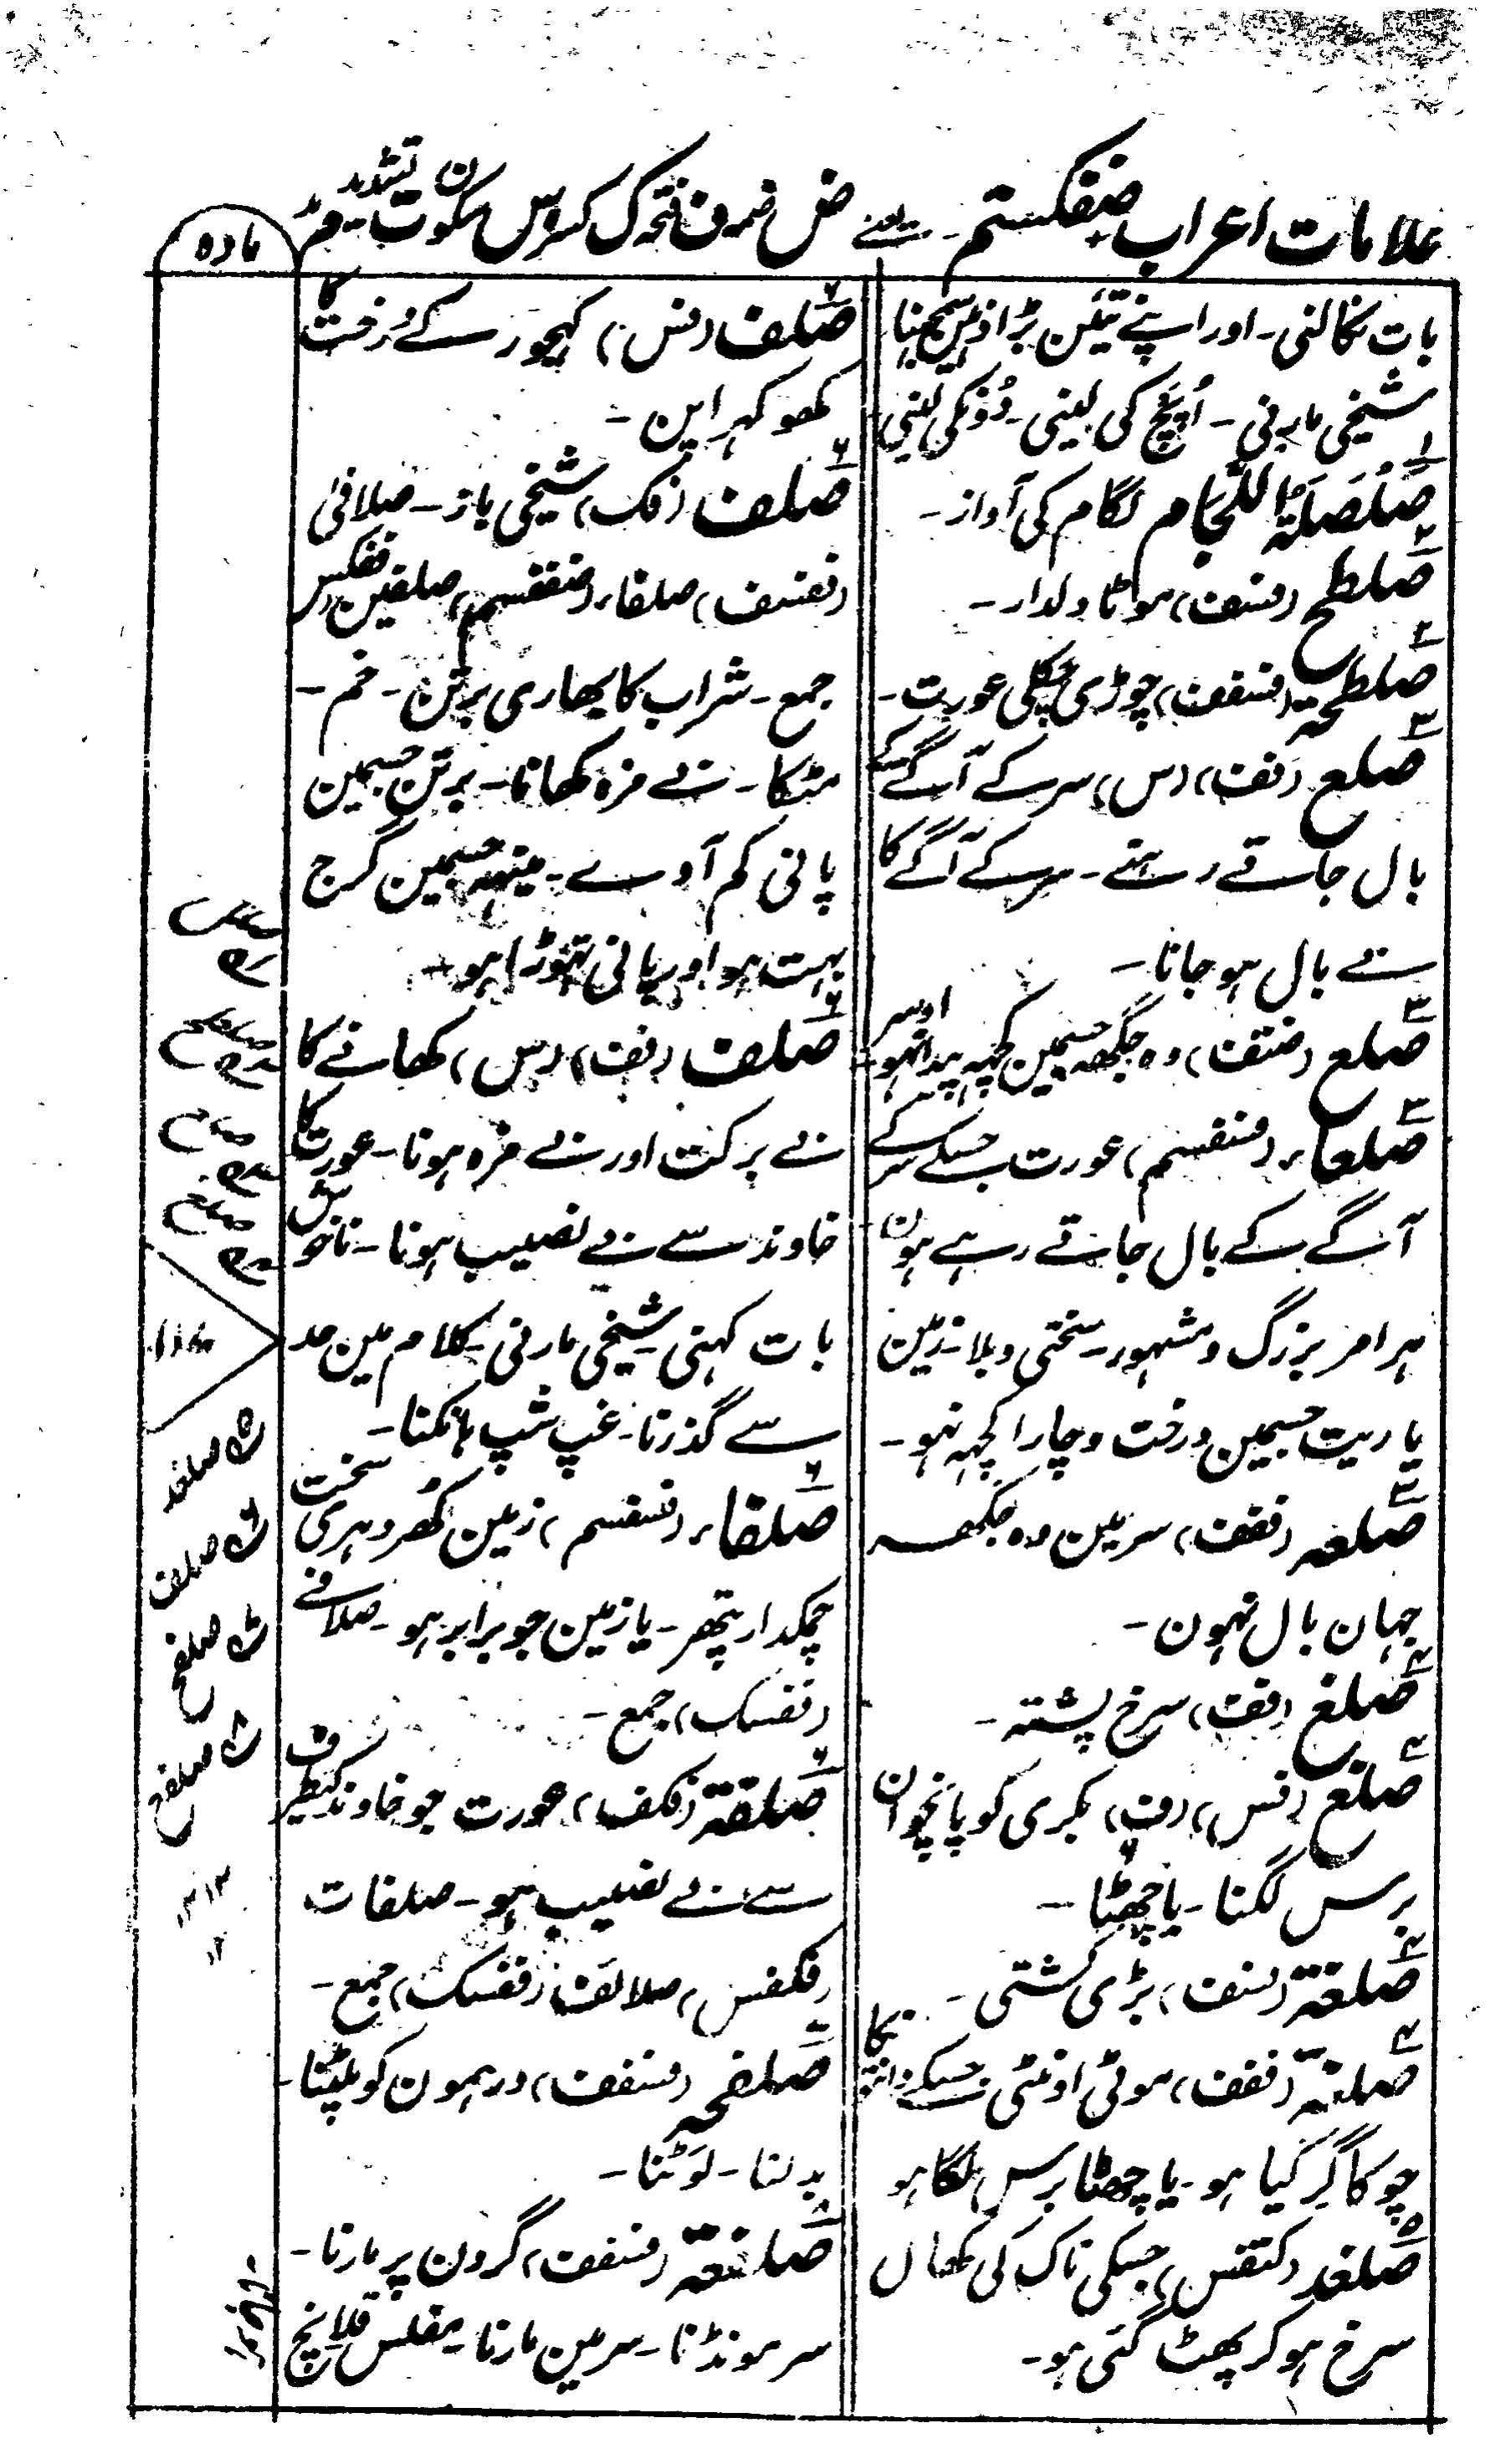 علامات اعراب ضفکستم - یعنے ض ضمہ ف فتحہ ک کسرہ س سکون ت تشدید م مد
مادہ
بات نکالنی - اور اپنے تئین بڑا سمجھنا
شیخی مارنی - اُونچ کی لینی - دُونکی لینی
صَلْصَلَۃُ اللّجَام لگام کی آواز -
صلطح (فسف) موٹا ولدار -
صلطحۃ (فسفف) چوڑی چکلی عورت -
صلع (فف) (س) سر کے آگے کے
بال جاتے رہنے - سر کے آگے کا
بے بال ہو جانا -
صلع (ضتف) وہ جگھہ جسمین کچھہ پیدا نہو - اوسر
صلعاء (فسفسم) عورت جسکے سر کے
آگے کے بال جاتے رہے ہون
ہر امر بزرگ و مشہور - سختی و بلا - زمین
یا ریت جسمین درخت و چارا کچھہ نہو -
صلعہ (ففف) سر مین وہ جگھہ
جہان بال نہون -
صلغ (فف) سرخ پشتہ -
صلغ (فس) (ف) بکری کو پانچوان
برس لگنا - یا چھٹا -
صلغۃ (فسف) بڑی کشتی -
صلغۃ (ففف) موٹی اونٹنی جسکے دانتونکا
چوکا گر گیا ہو - یا چھٹا برس لگا ہو
صلغد (کتفس) جسکی ناک کی کھال
سرخ ہو کر پھٹ گئی ہو -
صلف (فس) کھجور کے درخت کا
کھوکھراپن -
صلف (فک) شیخی باز - صلافی
(ففسف) صلفاء (ضففسم) صلفین (فکس
جمع - شراب کا بھاری برتن - خم -
مٹکا - بے مزہ کھانا - برتن جسمین
پانی کم آوے - مینہہ جسمین گرج
بہت ہو اور پانی تھوڑا ہو -
صلف (فف) (س) کھانے کا
بے برکت اور بے مزہ ہونا - عورت کا
خاوند سے بے نصیب ہونا - ناخوش
بات کہنی - شیخی مارنی - کلام مین حد
سے گذرنا - غپ شپ ہانکنا -
صلفاء (فسفسم) زمین کُھردہری سخت
چمکدار پتھر - یا زمین جو برابر ہو - صلافے
(ففسک) جمع -
صلفۃ (فکف) عورت جو خاوند کیطرف
سے بے نصیب ہو - صلفات
(فکفس) صلائف (ففسک) جمع -
صلفحہ (فسفف) درہمون کو پلٹنا -
بدلنا - لَوٹنا -
صلفعۃ (فسفف) گردن پر مارنا -
سر مونڈنا - سر مین مارنا - مفلس قلانچ
صلغد
صلف
صلفح
صلفع